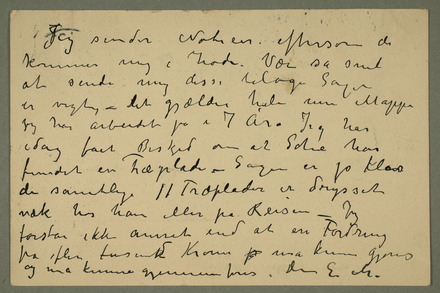 Jeg sender Notiser. eftersom de
kommer mig i Hode. Vær så snil
at sende mig disse tilbage Sagen
er vigtig – det gjælder hele min Mappe
jeg har arbeidet på i 7 År. Jeg har
idag fået Besked om at Schie har
fundet en Træplade – Sagen er jo klar
de samtlige 11 Træplader er
væk hos ham eller på Reisen – Jeg
forstår ikke annet end at en Fordring
på flere tusend Kroner må kunne gjøres
og må kunne gjennemføres. Din E. M.